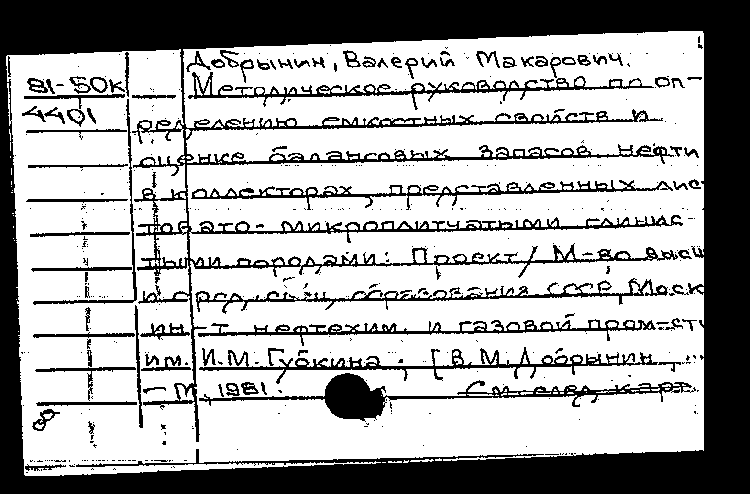 Добрынин, Валерий Макарович.
81-50к Методическое руководство по оп-
4401
ределению емкостных свойств и
оценке балансовых запасов нефти
в коллекторах, представленных лис-
товато-микроплитчатыми глинис-
тыми породами: Проект / М-во высш
и сред. спец. образования СССР, Моск
ин-т нефтехим. и газовой пром-сти
им. И.М. Губкина; [В.М. Добрынин, ...
— М., 1981. См. след. карт.